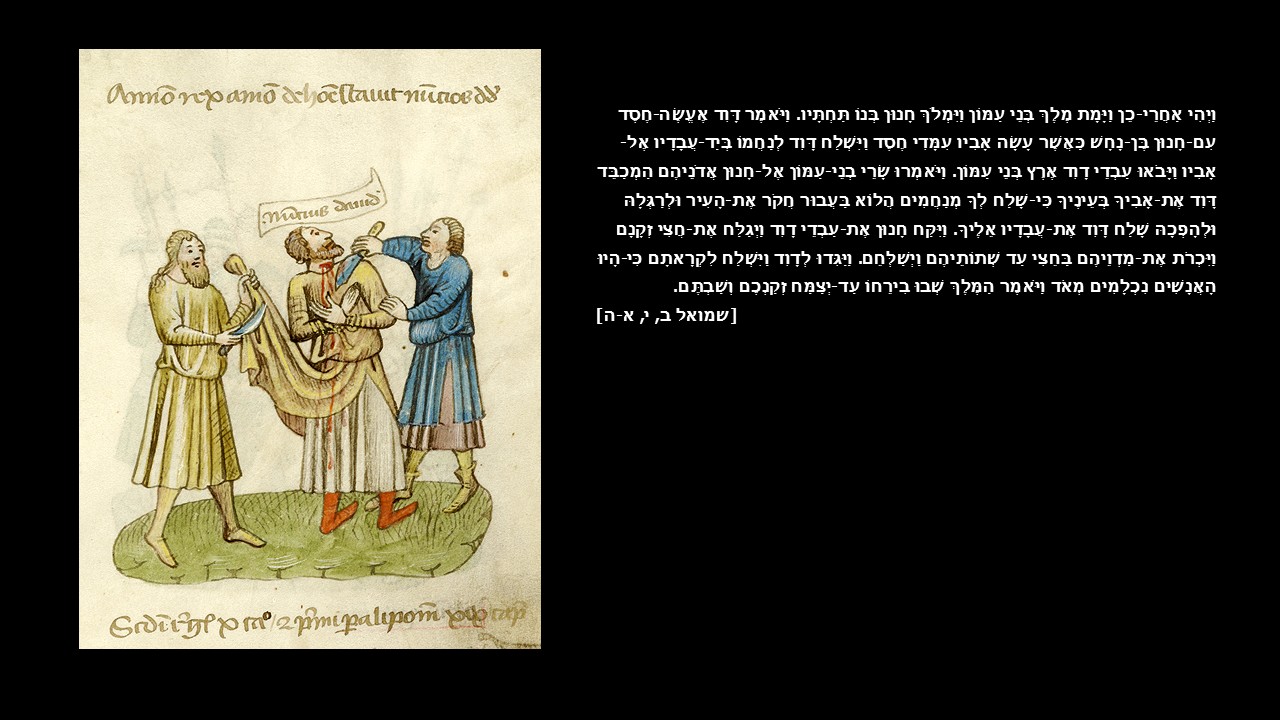 Annō rex amō dehoēstauit nūcios dd
nūcius dauid
Scdī r̄gl x ca° 2 p̄mi paliponī xix cap̄
וַיְהִי אַחֲרֵי-כֵן וַיָּמָת מֶלֶךְ בְּנֵי עַמּוֹן וַיִּמְלֹךְ חָנוּן בְּנוֹ תַּחְתָּיו. וַיֹּאמֶר דָּוִד אֶעֱשֶׂה-חֶסֶד
עִם-חָנוּן בֶּן-נָחָשׁ כַּאֲשֶׁר עָשָׂה אָבִיו עִמָּדִי חֶסֶד וַיִּשְׁלַח דָּוִד לְנַחֲמוֹ בְּיַד-עֲבָדָיו אֶל-
אָבִיו וַיָּבֹאוּ עַבְדֵי דָוִד אֶרֶץ בְּנֵי עַמּוֹן. וַיֹּאמְרוּ שָׂרֵי בְנֵי-עַמּוֹן אֶל-חָנוּן אֲדֹנֵיהֶם הַמְכַבֵּד
דָּוִד אֶת-אָבִיךָ בְּעֵינֶיךָ כִּי-שָׁלַח לְךָ מְנַחֲמִים הֲלוֹא בַּעֲבוּר חֲקֹר אֶת-הָעִיר וּלְרַגְּלָהּ
וּלְהָפְכָהּ שָׁלַח דָּוִד אֶת-עֲבָדָיו אֵלֶיךָ. וַיִּקַּח חָנוּן אֶת-עַבְדֵי דָוִד וַיְגַלַּח אֶת-חֲצִי זְקָנָם
וַיִּכְרֹת אֶת-מַדְוֵיהֶם בַּחֵצִי עַד שְׁתוֹתֵיהֶם וַיְשַׁלְּחֵם. וַיַּגִּדוּ לְדָוִד וַיִּשְׁלַח לִקְרָאתָם כִּי-הָיוּ
הָאֲנָשִׁים נִכְלָמִים מְאֹד וַיֹּאמֶר הַמֶּלֶךְ שְׁבוּ בִירֵחוֹ עַד-יְצַמַּח זְקַנְכֶם וְשַׁבְתֶּם.
[שמואל ב, י, א-ה]